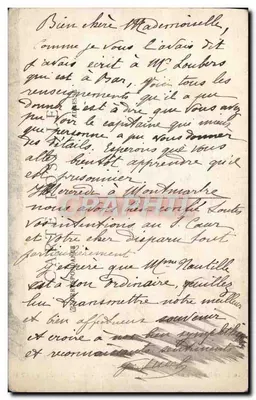 Bien chère Mademoiselle,
Comme je vous l'avais dit
j'avais écrit à Mr Loubers
qui est à Bar, Voici tous les
renseignements qu'il a pu
donner c'est à dire que vous avez
pu voir le capitaine que mieux
que personne a pu vous donner
des détails. Espérons que vous
allez bientôt apprendre qu'il
est prisonnier.
Mercredi à Montmartre
nous avons bien confié toutes
vos intentions au S. Cœur
et votre cher disparu tout
particulièrement.
J'espère que Mme
est à son ordinaire, veuillez
lui transmettre notre meilleur
et bien affectueux souvenir
et croire à
et reconnaissants sentiments